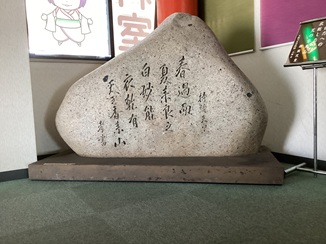 持統天皇
春過而
夏来良之
白妙能
衣乾有
天之香来山
室